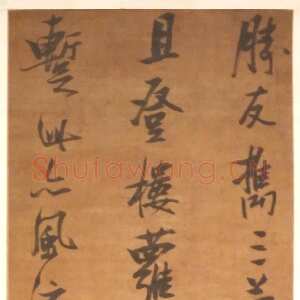 勝友攜二
且登樓蘿
暫此亦風
Shufawang.cn